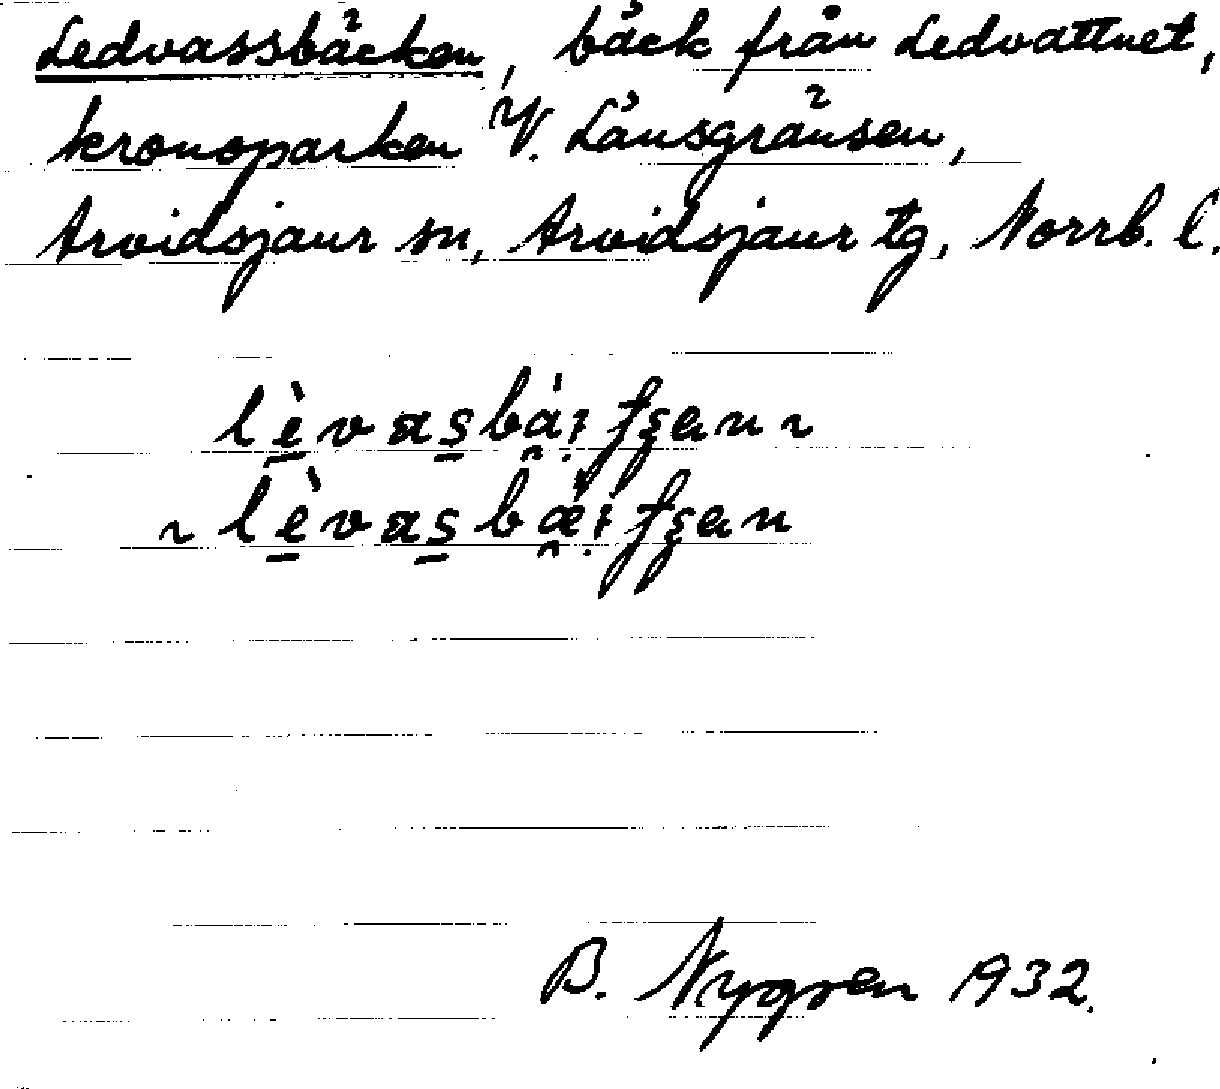 Ledvassbäcken, bäck från Ledvattnet,
kronoparken V. Länsgränsen,
Arvidsjaur sn, Arvidsjaur tg, Norrb. l.
B. Nygren 1932.